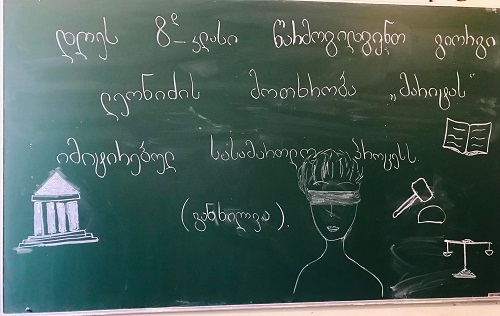 დღეს 8² კლასი წარმოგიდგენთ გიორგი
ლეონიძის მოთხრობა „მარიტას“
იმიტირებულ სასამართლო პროცესს
(განხილვა).